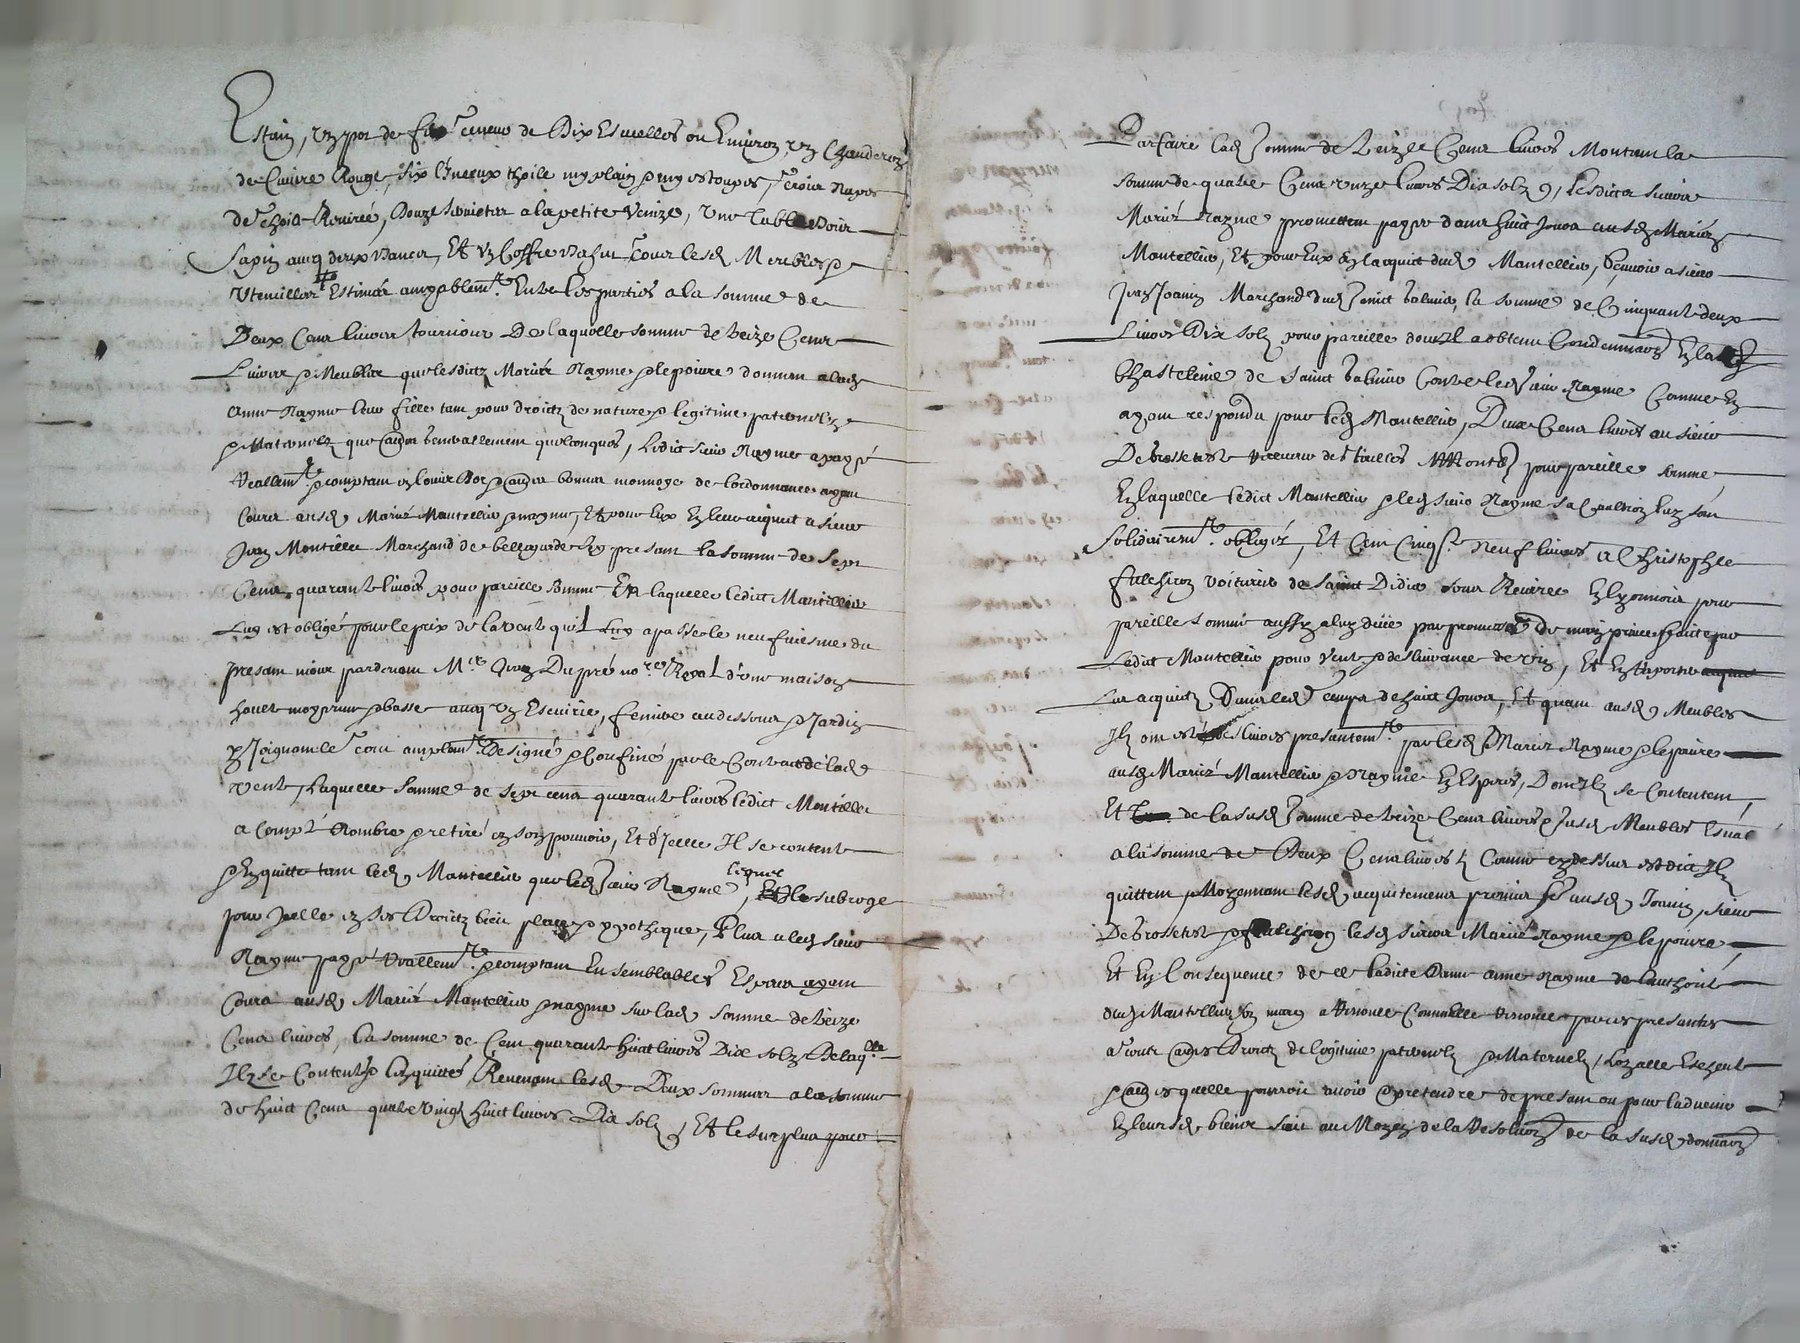 Estain, un pot de fer tenant de Dix Escuelles ou Environ, un Chauderon
de Cuivre Rouge, six linceux thoile my plain & my estoupes, trois napes
de thoile Rouirée, Douze servietes a la petite Venize, Une Table bois
Sapin avecq deux bancz, Et un Coffre Tous lesd Meubles &
Utencilles Estimés amyablemt Entre les parties a la somme de
Deux Cens livres tournois De laquelle somme de treize Cens
Livres & Meubles que lesdictz Mariés Rayme & lepoivre donnent a lad
Anne Rayme leur fille tant pour droictz de nature & legitime paternelz
& Maternelz que quelconques, Ledict sieur Rayme a payé
reallemt & comptant en louis Dor & bonne monnoye de lordonnance ayant
Cours ausd Mariés Mantellier & Rayme, Et pour Eux En leur acquit a sieur
Jean Montillet Marchand de bellegarde Icy present la somme de Sept
Cens quarante livres pour pareille somme En laquelle ledict Mantellier
Luy est obligé pour le prix de la vente quil Luy a passé le neufviesme du
present mois pardevant Me Jean Dupré nore Royal dune maison
haute moyenne & basse avecq un Escuirie, feniere au dessous & Jardin
Joignant le tout amplemt Designé & Confiné par le Contract de lad
vente, Laquelle somme de sept cens quarante livres ledict Montillet
a Compté Nombré & retiré en son pouvoir, Et dJcelle Il se contente
& En quitte tant led Mantellier que led sieur Rayme lequel, Il le subroge
pour Jcelle en ses Droictz lieu place & ypotheque, Plus a led sieur
Rayme payé reallemt & comptant En semblables Especes ayant
Cours ausd Mariés Mantellier & Rayme sur lad somme de treize
Cens livres, la somme de Cent quarante huict livres Dix solz De laqlle
Ilz se Contentent & lenquittent Revenant lesd Deux sommes a la somme
de huict Cens quatre vingt huict livres Dix solz, Et le surplus pour
Parfaire lad somme de treize Cens livres Montant la
somme de quatre Cens unze livres Dix solz, lesdictz sieurs
Mariés Rayme promettent payer dans huict Jours ausd Mariés
Mantellier, Et pour Eux En lacquit dud Mantellier, Scavoir a sieur
Jean Joanin Marchand dud Sainct Galmier la somme de Cinquante deux
Livres Dix solz pour pareille dont Il a obtenu Condemnaon En la
Chastelenie de Sainct Galmier Contre led sieur Rayme Comme En
ayant respondu pour led Mantellier, Deux Cens livres au sieur
De brosse receveur des tailles pour pareille somme
En laquelle ledict Mantellier & led sieur Rayme sa Caultion luy sont
Solidairemt obligés, Et Cent Cinqte Neuf livres a Christophle
voiturier de Sainct Didier soubz Reviere En lyonnois pour
pareille somme aussy a luy deüe par promesse de main privee faicte par
Ledict Mantellier pour vente & deslivrance de vin, Et En raporter
Les acquitz Dans led temps de huict Jours, Et quant ausd Meubles
Ilz ont esté deslivres presentemt par lesd Mariés Rayme & lepoivre
ausd Mariés Mantellier & Rayme En Especes, Dont Ilz se Contentent,
Et de la susd somme de treize Cens livres & susd Meubles Esvalués
a la somme de Deux Cens livres Comme cy dessus est dict Ilz
quittent & Moyennant lesd acquitemens promis ausd Joanin, sieur
De brosse & lesd sieurs Mariés Rayme & lepoivre,
Et En Consequence de ce ladicte Dame anne Rayme de lauthorité
dud Mantellier son mary a Renoncé Comme Elle Renonce par ces presentes
a tous Droictz de legitime paternelz & Maternelz,
& quelle pourroit avoir & pretendre de present ou pour ladvenir
En leursd biens soit au Moyen de la de la susd donnaon